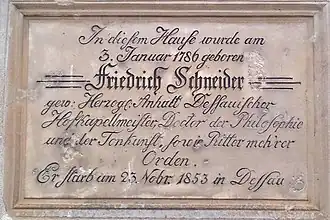 In diesem Hause wurde am
3. Januar 1786 geboren
Friedrich Schneider
gew. Herzogl. Anhalt Dessauischer
Hofkapellmeister, Doctor der Philosophie
und der Tonkunst, sowie Ritter mehrer
Orden.
Er starb am 23. Nobr. 1853 in Dessau